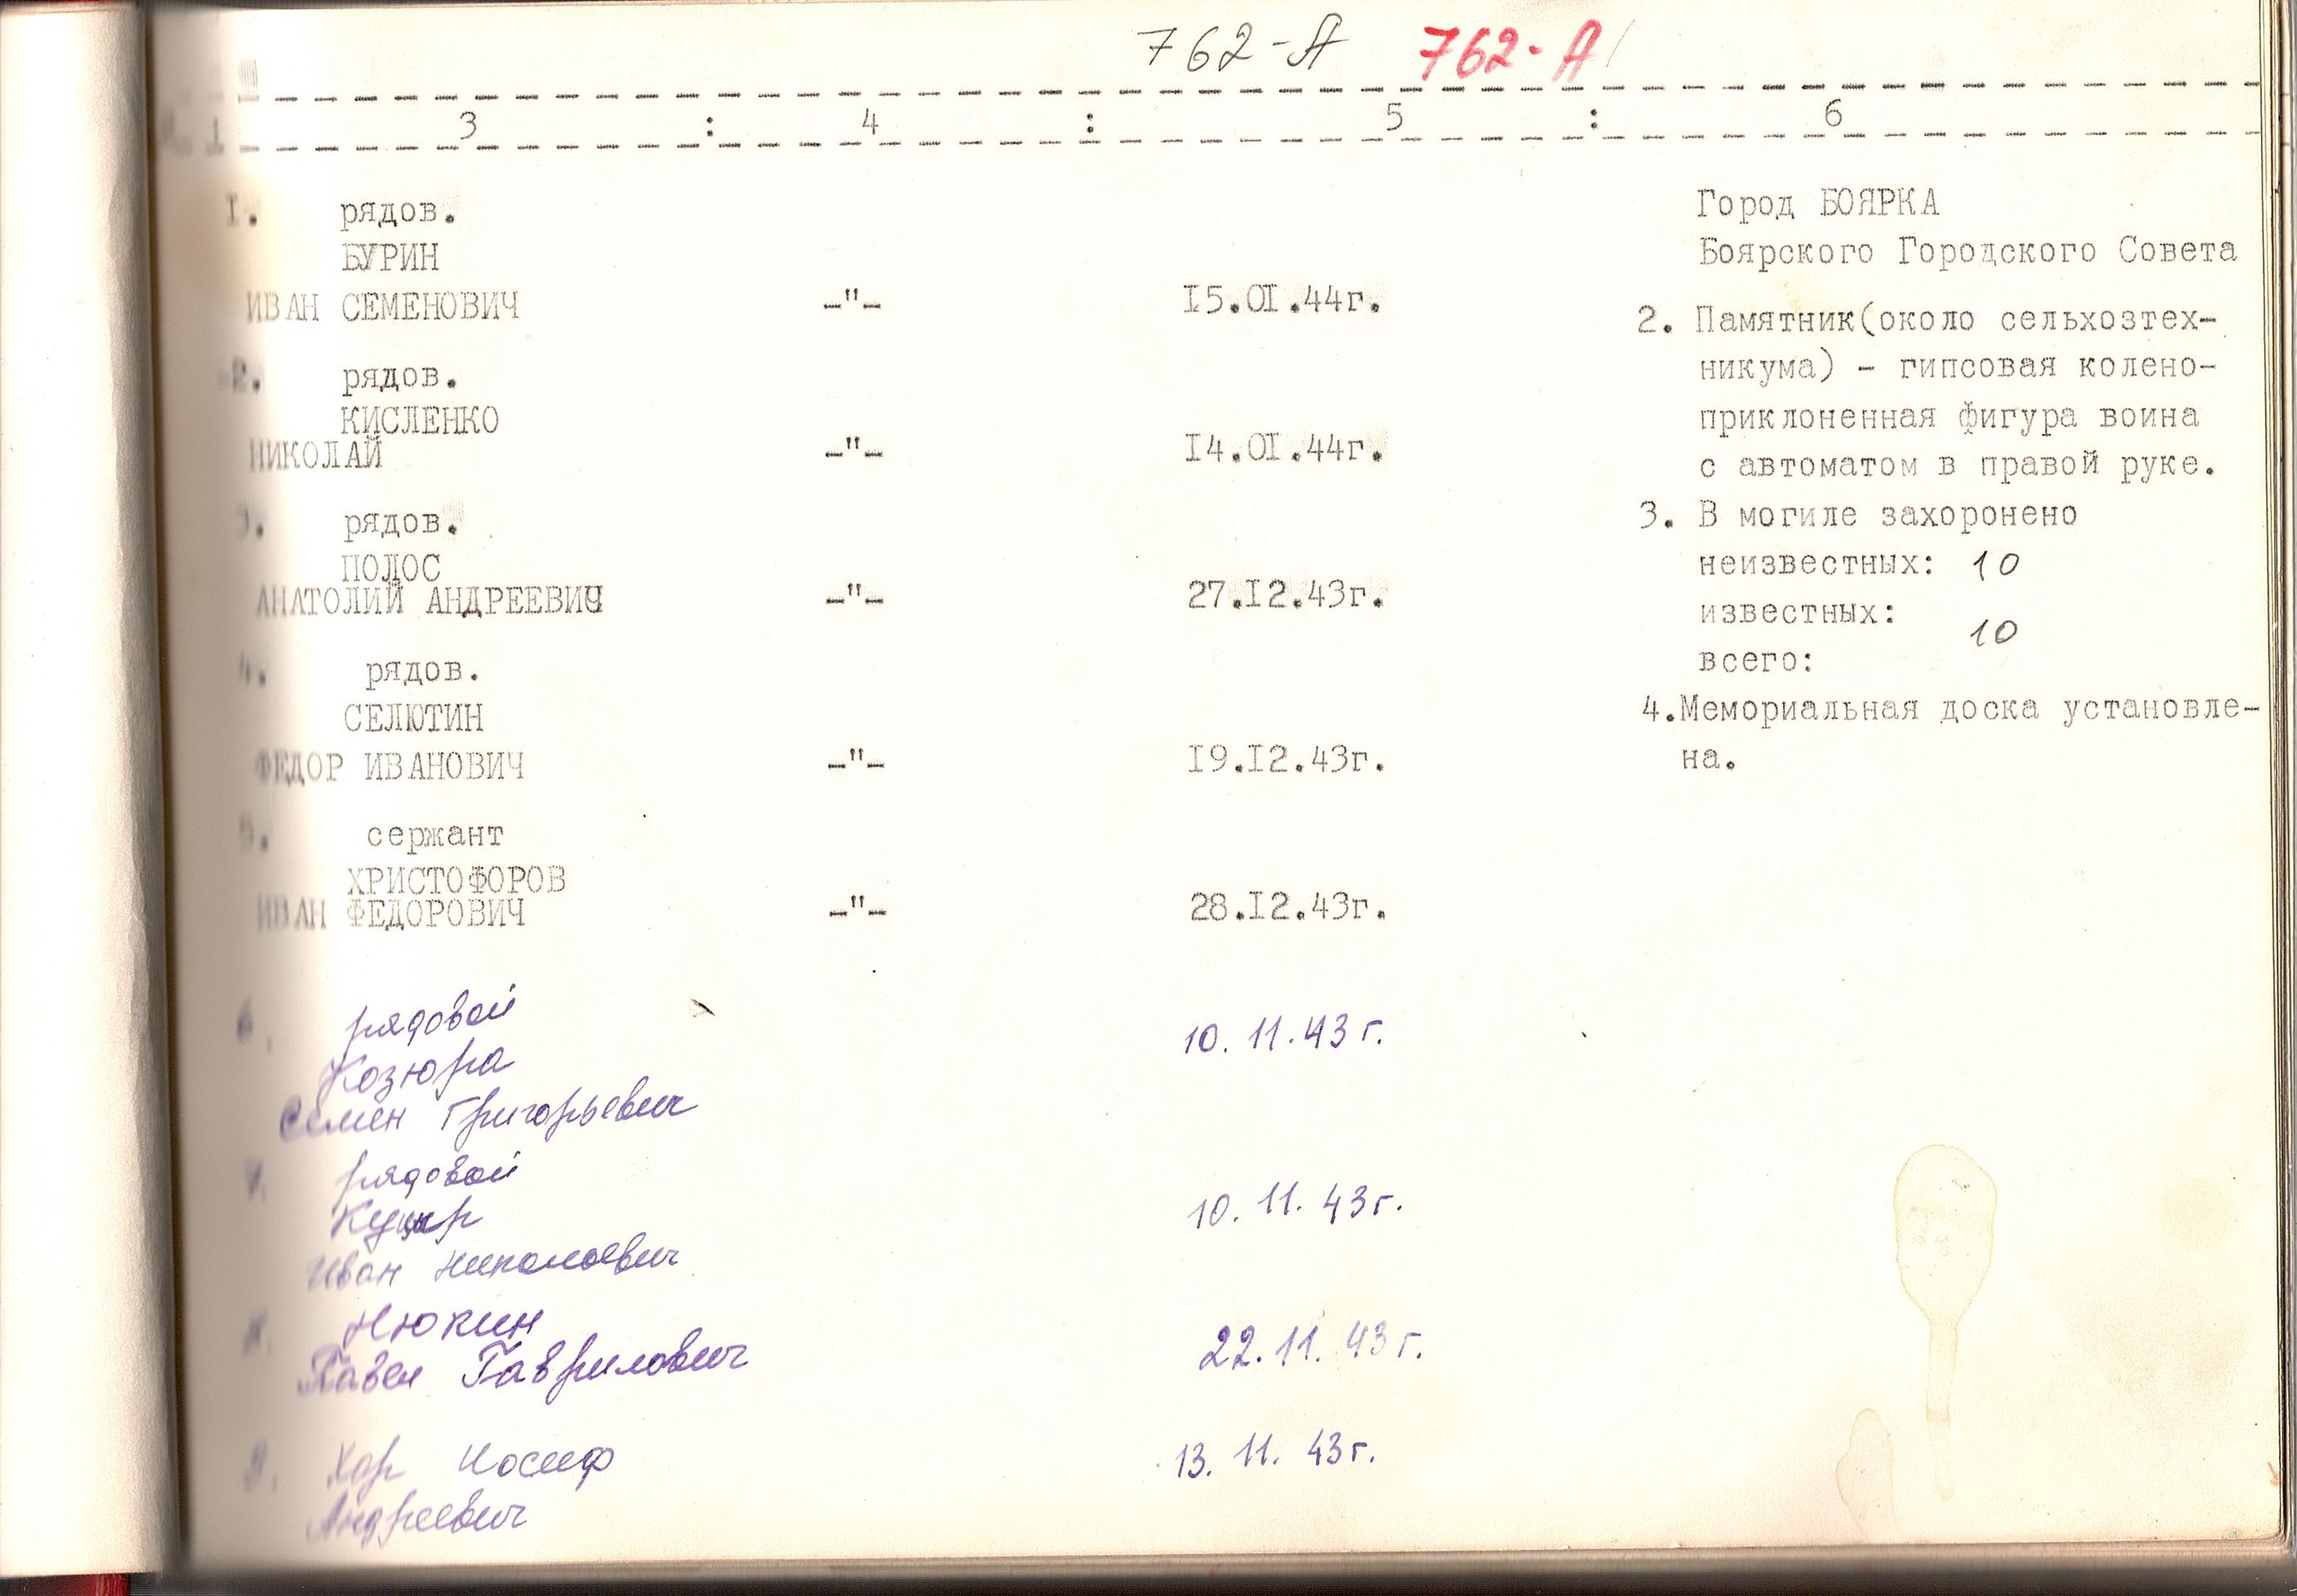 762-А 762-А
3 : 4 : 5 : 6
1. рядов.
БУРИН
ИВАН СЕМЕНОВИЧ -"- 15.01.44г.
2. рядов.
КИСЛЕНКО
НИКОЛАЙ -"- 14.01.44г.
3. рядов.
ПОЛОС
АНАТОЛИЙ АНДРЕЕВИЧ -"- 27.12.43г.
4. рядов.
СЕЛЮТИН
ФЕДОР ИВАНОВИЧ -"- 19.12.43г.
5. сержант
ХРИСТОФОРОВ
ИВАН ФЕДОРОВИЧ -"- 28.12.43г.
6. рядовой
Козюра 10.11.43г.
Семен Григорьевич
7. рядовой
10.11.43г.
Иван Николаевич
8. Нюкин
Павел Гаврилович 22.11.43г.
9. Хар Иосиф 13.11.43г.
Андреевич
Город БОЯРКА
Боярского Городского Совета
2. Памятник(около сельхозтех-
никума) - гипсовая колено-
приклоненная фигура воина
с автоматом в правой руке.
3. В могиле захоронено
неизвестных: 10
известных: 10
всего:
4.Мемориальная доска установле-
на.